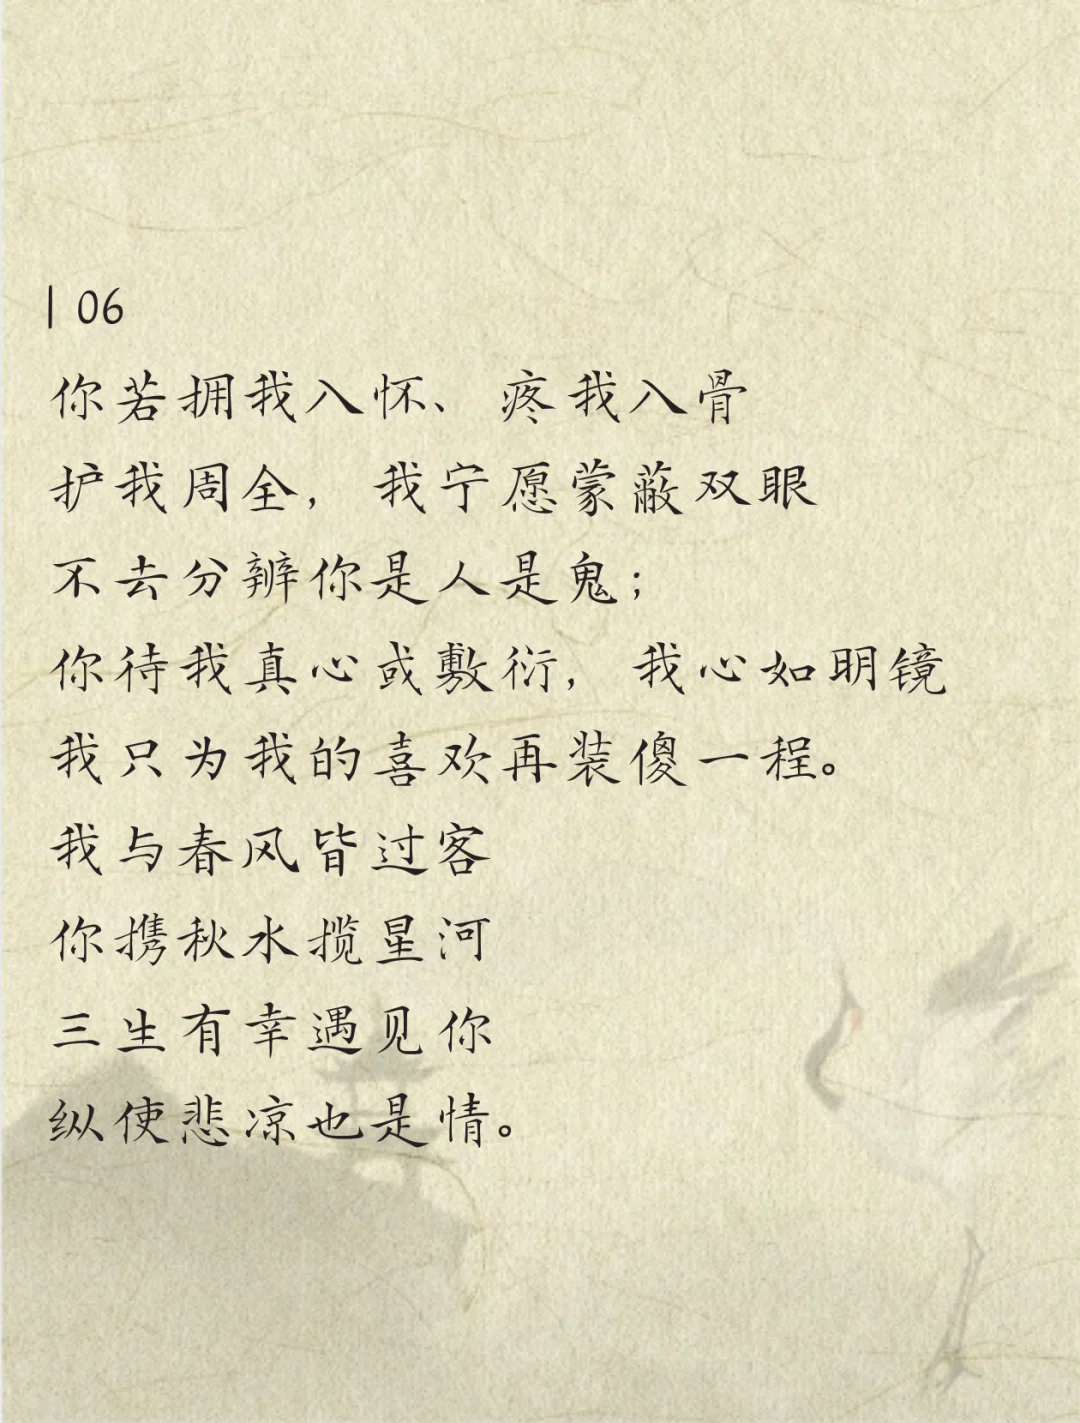 | 06
你若拥我入怀、疼我入骨
护我周全，我宁愿蒙蔽双眼
不去分辨你是人是鬼；
你待我真心或敷衍，我心如明镜
我只为我的喜欢再装傻一程。
我与春风皆过客
你携秋水揽星河
三生有幸遇见你
纵使悲凉也是情。